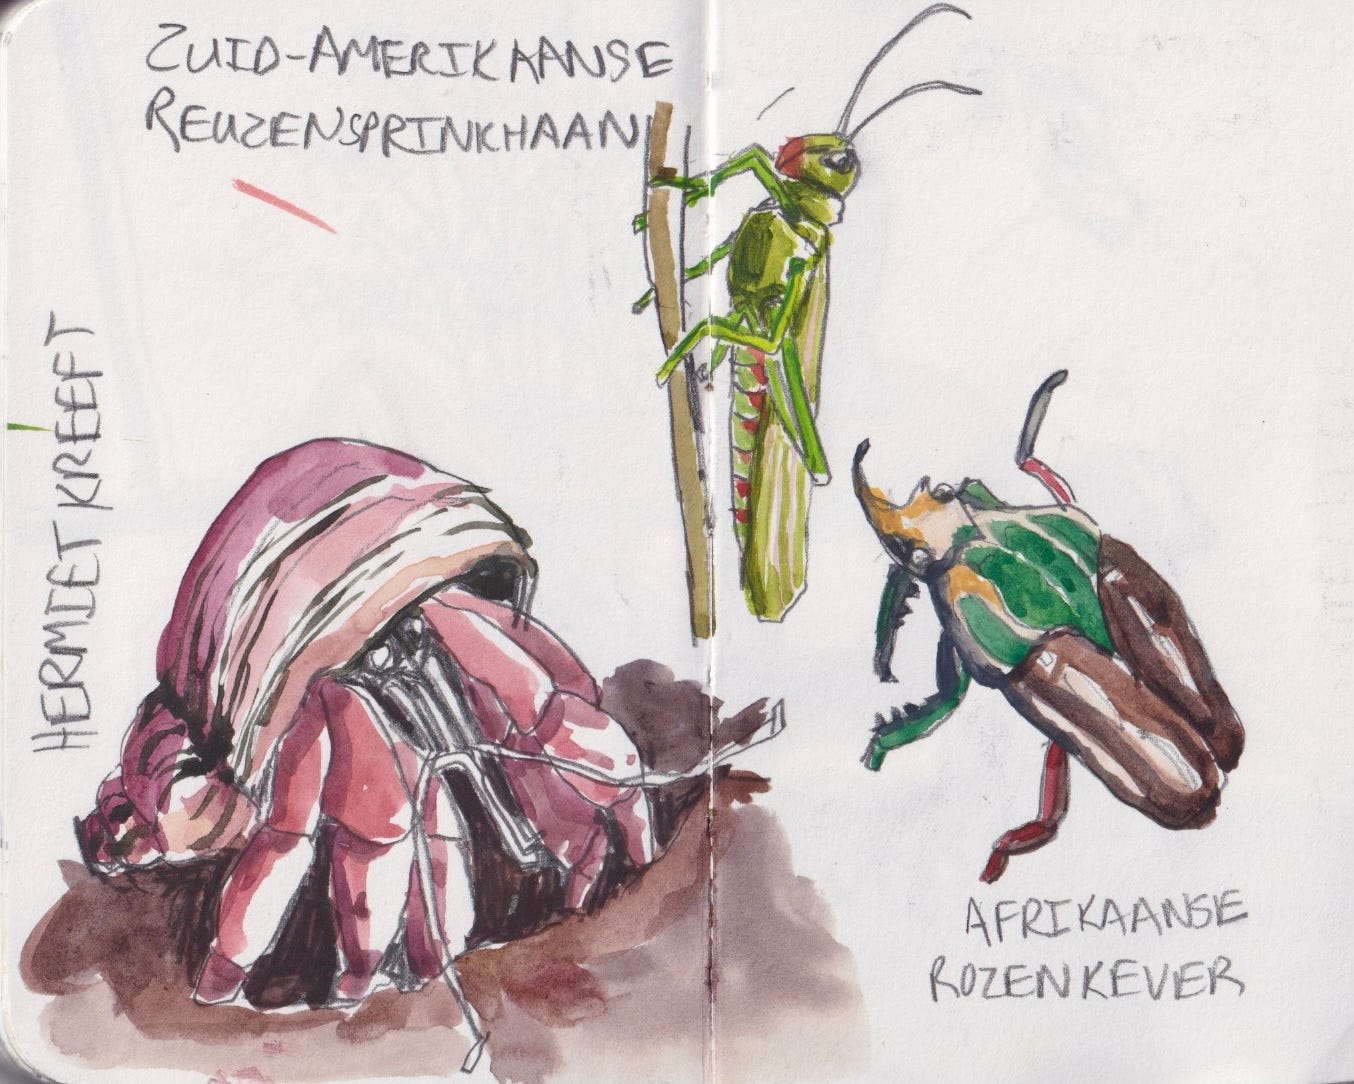 ZUID-AMERIKAANSE
REUZENSPRINKHAAN
HERMIETKREEFT
AFRIKAANSE
ROZENKEVER